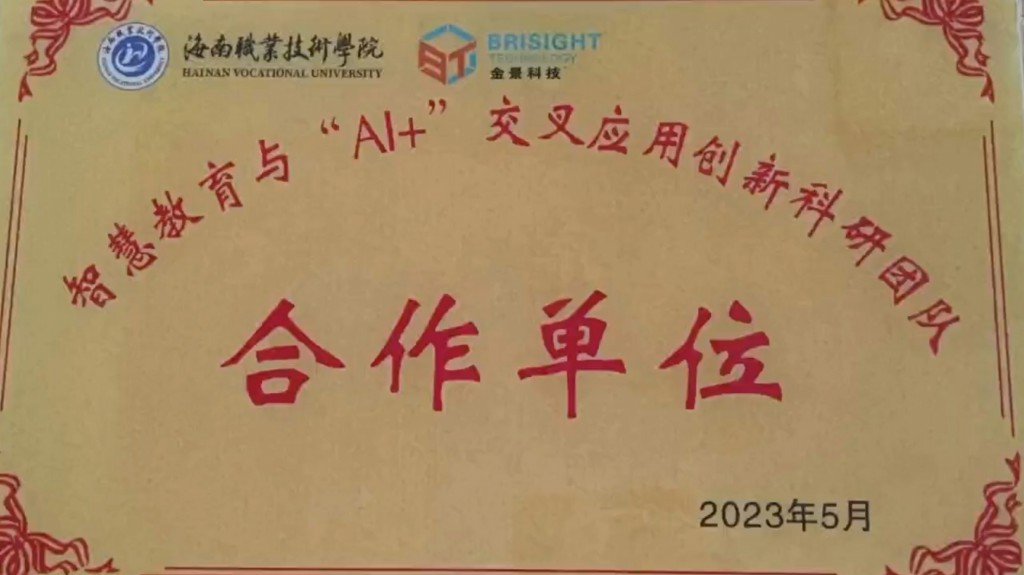 海南職業技術學院
HAINAN VOCATIONAL UNIVERSITY
BRISIGHT
TECHNOLOGY
金景科技
智慧教育与“AI+”交叉应用创新科研团队
合作单位
2023年5月